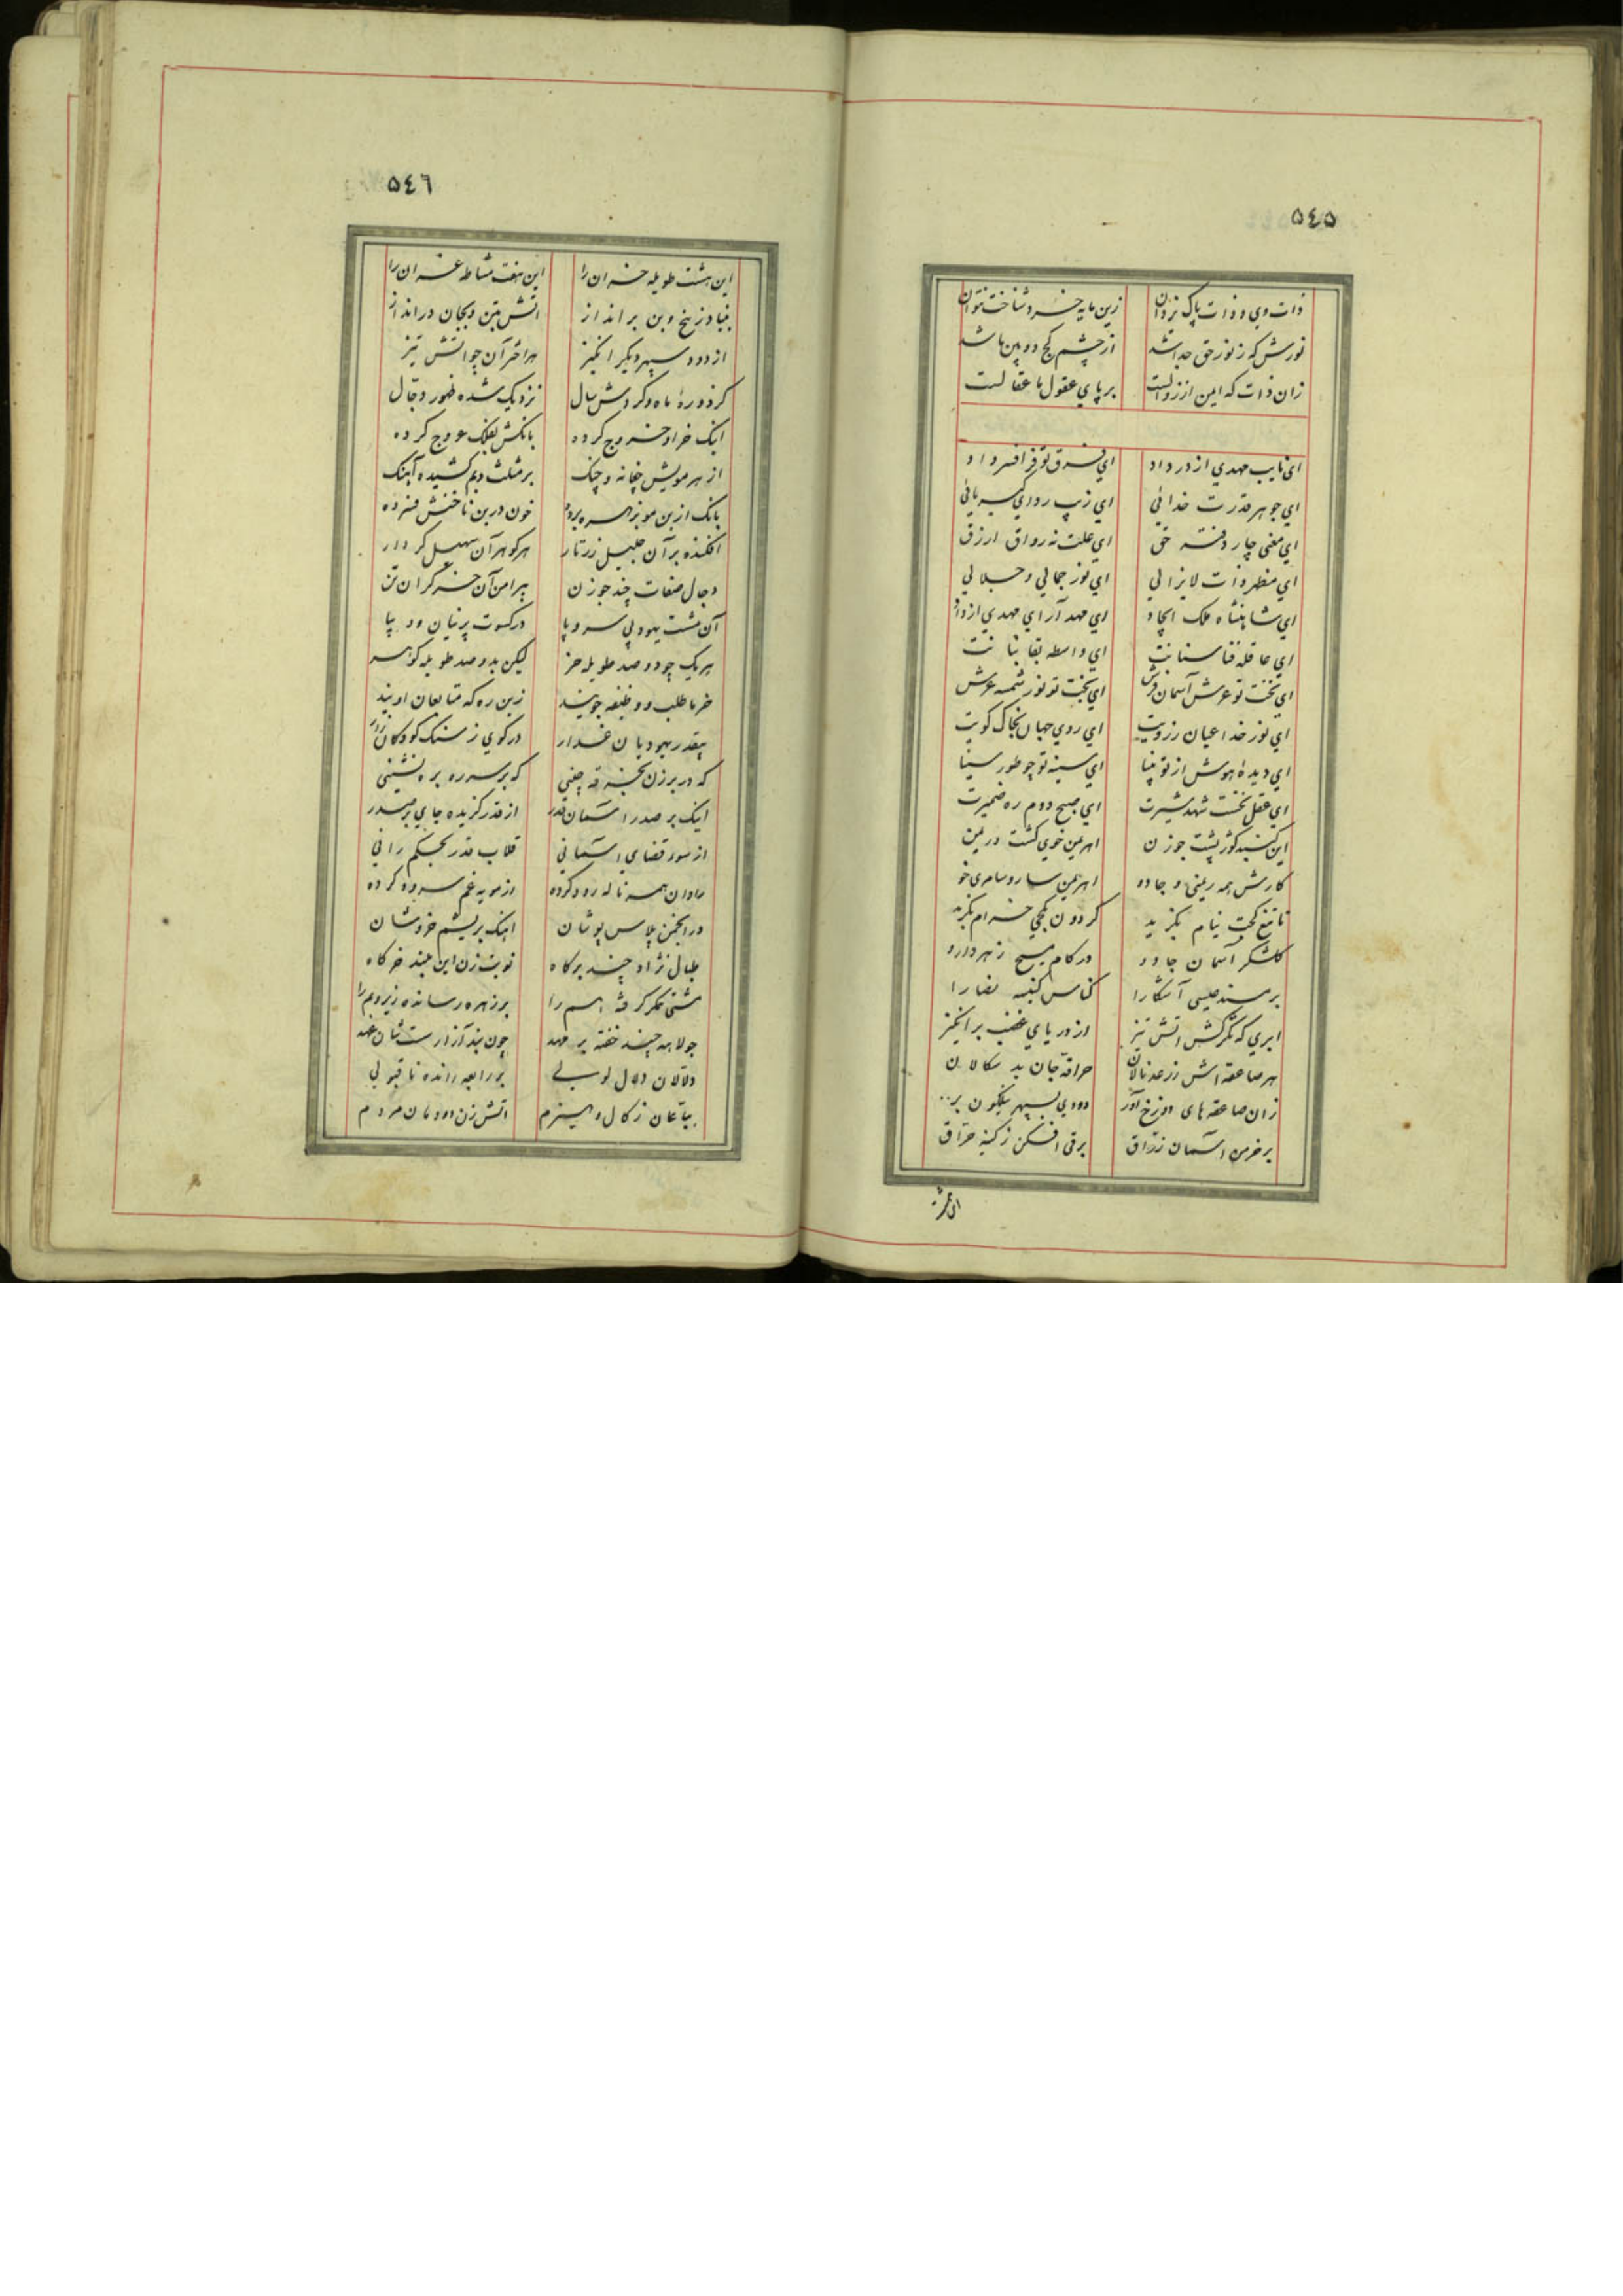 ٥٤٥
ذات وی و ذات پاک یزدان زین مایه خرد شناخت نتوان
نورش که ز نور حق جدا شد از چشم کج دو بین ما شد
زان ذات که ایمن از زوالست بر پای عقول ما عقالست
ای نایب مهدی از در داد ای فرق تو فر افسر و
ای جوهر قدرت خدائی ای زیب ردای کبریائی
ای معنی چار دفتر حق ای علت نه رواق ازرق
ای مظهر ذات لایزالی ای نور جمالی و جلالی
ای شاهنشاه ملک ایجاد ای مهد آرای مهدی از داد
ای عاقله فنا سنانت ای واسطه بقا بنانت
ای تخت تو عرش آسمان فرش ای بخت تو نور شمسه عرش
ای نور خدا عیان ز رویت ای روی جهان بخاک کویت
ای دیده هوش از تو بینا ای سینه تو چو طور سینا
ای عقل نخست شهد شیرت ای صبح دوم ره ضمیرت
این گنبد گوژپشت جوزن اهریمن خوی گشت
کارش همه ریمنی و جادو اهریمن سار و سامری خو
تا تیغ کجت نیام بگزید گردون کجی خرام بگزید
کلشکر آسمان جادو در کام مسیح زهر دارو
بر مسند عیسی آشکارا کناس کنیسه نصارا
ابری که تگرگش آتش تیز از دریای غضب برانگیز
هر صاعقه اش ز رعد نالان حراقه جان بد سگالان
زان صاعقه های دوزخ آور دودی بسپهر نیلگون بر
بر خرمن آسمان زراق برقی افکن ز کینه حراق
٥٤٦
این هشت طویله خران را این هفت مشاطه غران را
بنیاد ز بیخ و بن برانداز آتش بتن و بجان درانداز
از دود سپهر دیگر انگیز هر اختر آن چو آتش تیز
کز دوره ماه و گردش سال نزدیک شده ظهور دجال
اینک خر او خروج کرده بانگش بفلک عروج کرده
از هر مویش چغانه و چنگ بر مثلث و بم کشیده آهنگ
بانگ از بن مو بزهره برده خون در بن ناخنش فسرده
افکنده بر آن جلیل زرتار هر گوهر آن سهیل کردار
دجال صفات چند جوزن پیرامن آن خر گران تن
آن مشت یهود بی سر و پا در کسوت پرنیان و دیبا
هر یک چو دو صد طویله خر لیکن بدو صد طویله گوهر
خرما طلب و وظیفه جویند زین ره که متابعان اویند
بیقدر یهودیان غدار در کوی ز سنگ کودکان زار
که در برزن بخرقه چینی که بر سر ره بره نشینی
اینک بر صدر آسمان قدر از قدر گزیده جای بر صدر
از سوء قضای آسمانی قلاب قدر بحکم رانی
مادان همه ناله رود کرده از مویه غم سرود کرده
در انجمن پلاس پوشان اینک بریشم خروشان
طبال نژاد چند برگاه نوبت زن این بلند خرگاه
مشتی عکر گرفته اسم را بر زهره رسانده زیر و بم را
جولاهه چند خفته بر مهد چون بند آزارست شان عهد
دلالان دلال لولی بر رابعه رانده ناقبولی
بیاعان زگال و هیزم آتش زن دودمان مردم